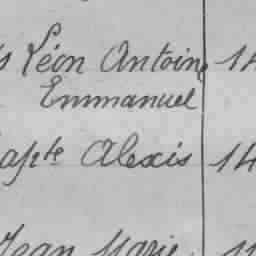 Léon Antoine 14
Emmanuel
apte Alexis 14
Jean Marie